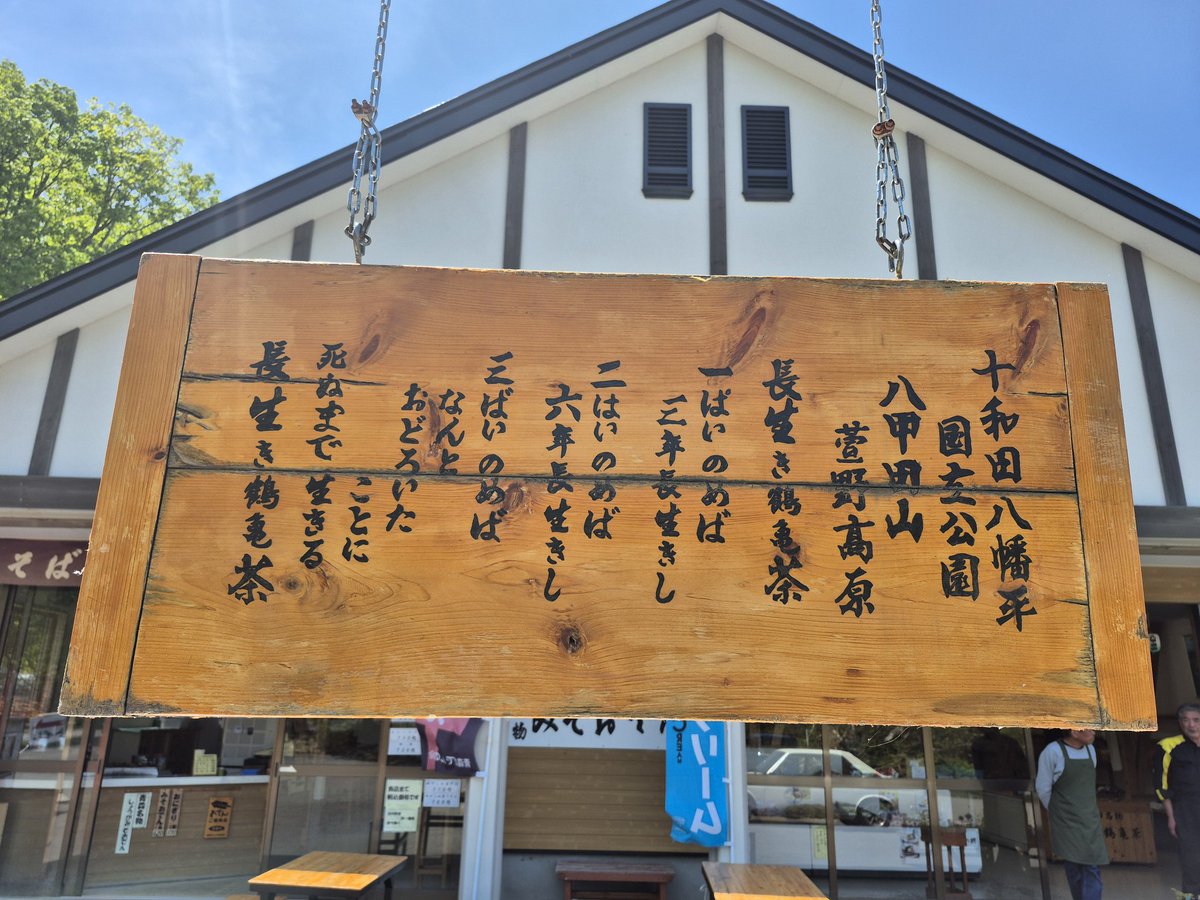 十和田八幡平
国立公園
八甲田山
萱野高原
長生き鶴亀茶
一ぱいのめば
三年長生きし
二はいのめば
六年長生きし
三ばいのめば
なんと
おどろいた
ことに
死ぬまで生きる
長生き鶴亀茶
そば
青森名物